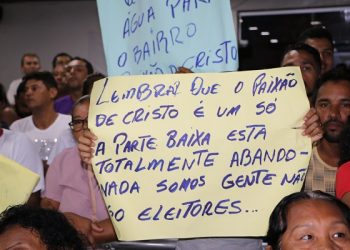 ÁGUA PARA
O BAIRRO
DE CRISTO
LEMBRAI QUE O PAIXÃO
DE CRISTO É UM SÓ
A PARTE BAIXA ESTA
TOTALMENTE ABANDO-
NADA SOMOS GENTE NÃO
SO ELEITORES...